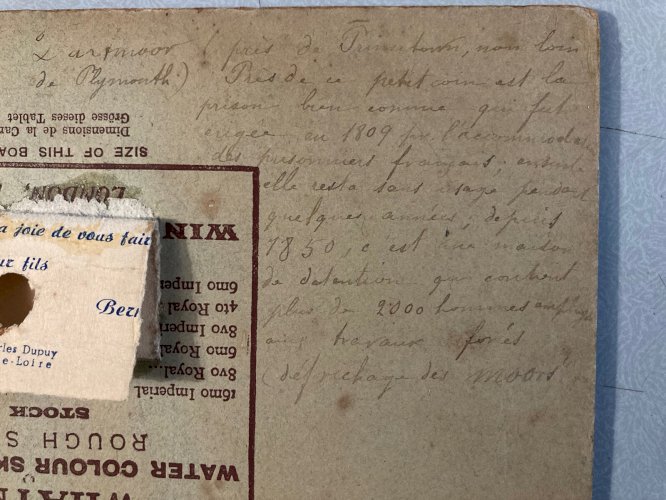 Dartmoor (près de Princetown, non loin
de Plymouth.) Près de ce petit coin est la
prison bien connue qui fut
érigée en 1809 pr l'accommodation
des prisonniers français, ensuite
elle resta sans usage pendant
quelques années, depuis
1850, c'est une maison
de détention qui contient
plus de 2000 hommes
aux travaux forcés
(défrichage des "moors"
Dimensions de la Car
Grösse dieses Tablet
SIZE OF THIS BOA
LONDON,
WIN
6mo Imperial
4to Royal
8vo Imperial
6mo Royal
8vo Royal
16mo Imperial
STOCK
ROUGH S
WATER COLOUR SK
WHAT
a joie de vous fair
ur fils
Ber
les Dupuy
e-Loire